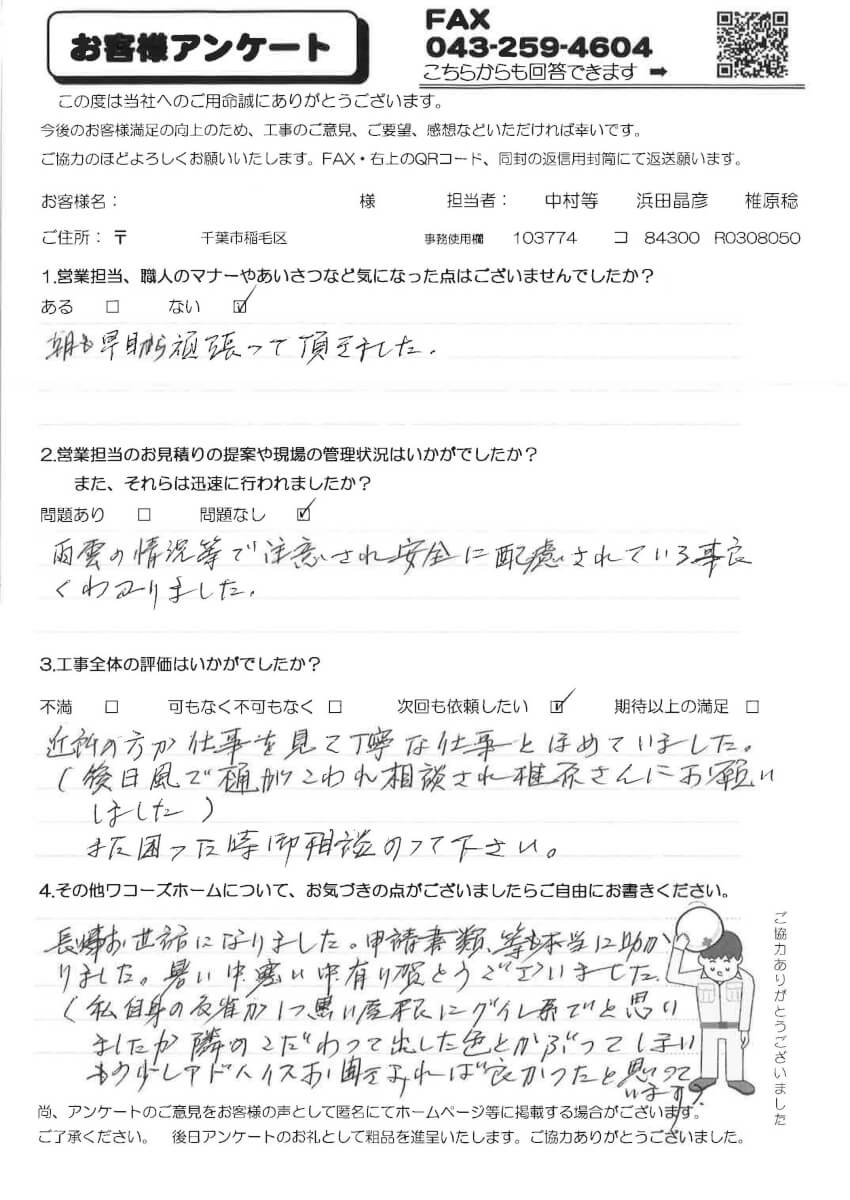 お客様アンケート
FAX
043-259-4604
こちらからも回答できます ➡
この度は当社へのご用命誠にありがとうございます。
今後のお客様満足の向上のため、工事のご意見、ご要望、感想などいただければ幸いです。
ご協力のほどよろしくお願いいたします。FAX・右上のQRコード、同封の返信用封筒にて返送願います。
お客様名： 様 担当者： 中村等 浜田晶彦 椎原稔
ご住所：〒 千葉市稲毛区 事務使用欄 103774 コ 84300 R0308050
1.営業担当、職人のマナーやあいさつなど気になった点はございませんでしたか？
ある □ ない ☑
朝も早目から頑張って頂きました.
2.営業担当のお見積りの提案や現場の管理状況はいかがでしたか？
また、それらは迅速に行われましたか？
問題あり □ 問題なし ☑
雨雲の情況等で注意され安全に配慮されている事良
くわかりました.
3.工事全体の評価はいかがでしたか？
不満 □ 可もなく不可もなく □ 次回も依頼したい ☑ 期待以上の満足 □
近所の方が仕事を見て丁寧な仕事とほめていました。
(後日風で樋がこわれ相談され椎原さんにお願い
しました)
また困った時御相談のって下さい。
4.その他ワコーズホームについて、お気づきの点がございましたらご自由にお書きください。
お世話になりました。申請書類、等も本当に助か
りました。暑い中寒い中有り賀とうございました.
(私自身の反省か1つ黒い屋根にグイレ系でと思い
ましたが隣のこだわって出した色とかぶってしまい
もう少しアドバイスお聞きすれば良かったと思って
います)
ご協力ありがとうございました
尚、アンケートのご意見をお客様の声として匿名にてホームページ等に掲載する場合がございます。
ご了承ください。 後日アンケートのお礼として粗品を進呈いたします。ご協力ありがとうございました。